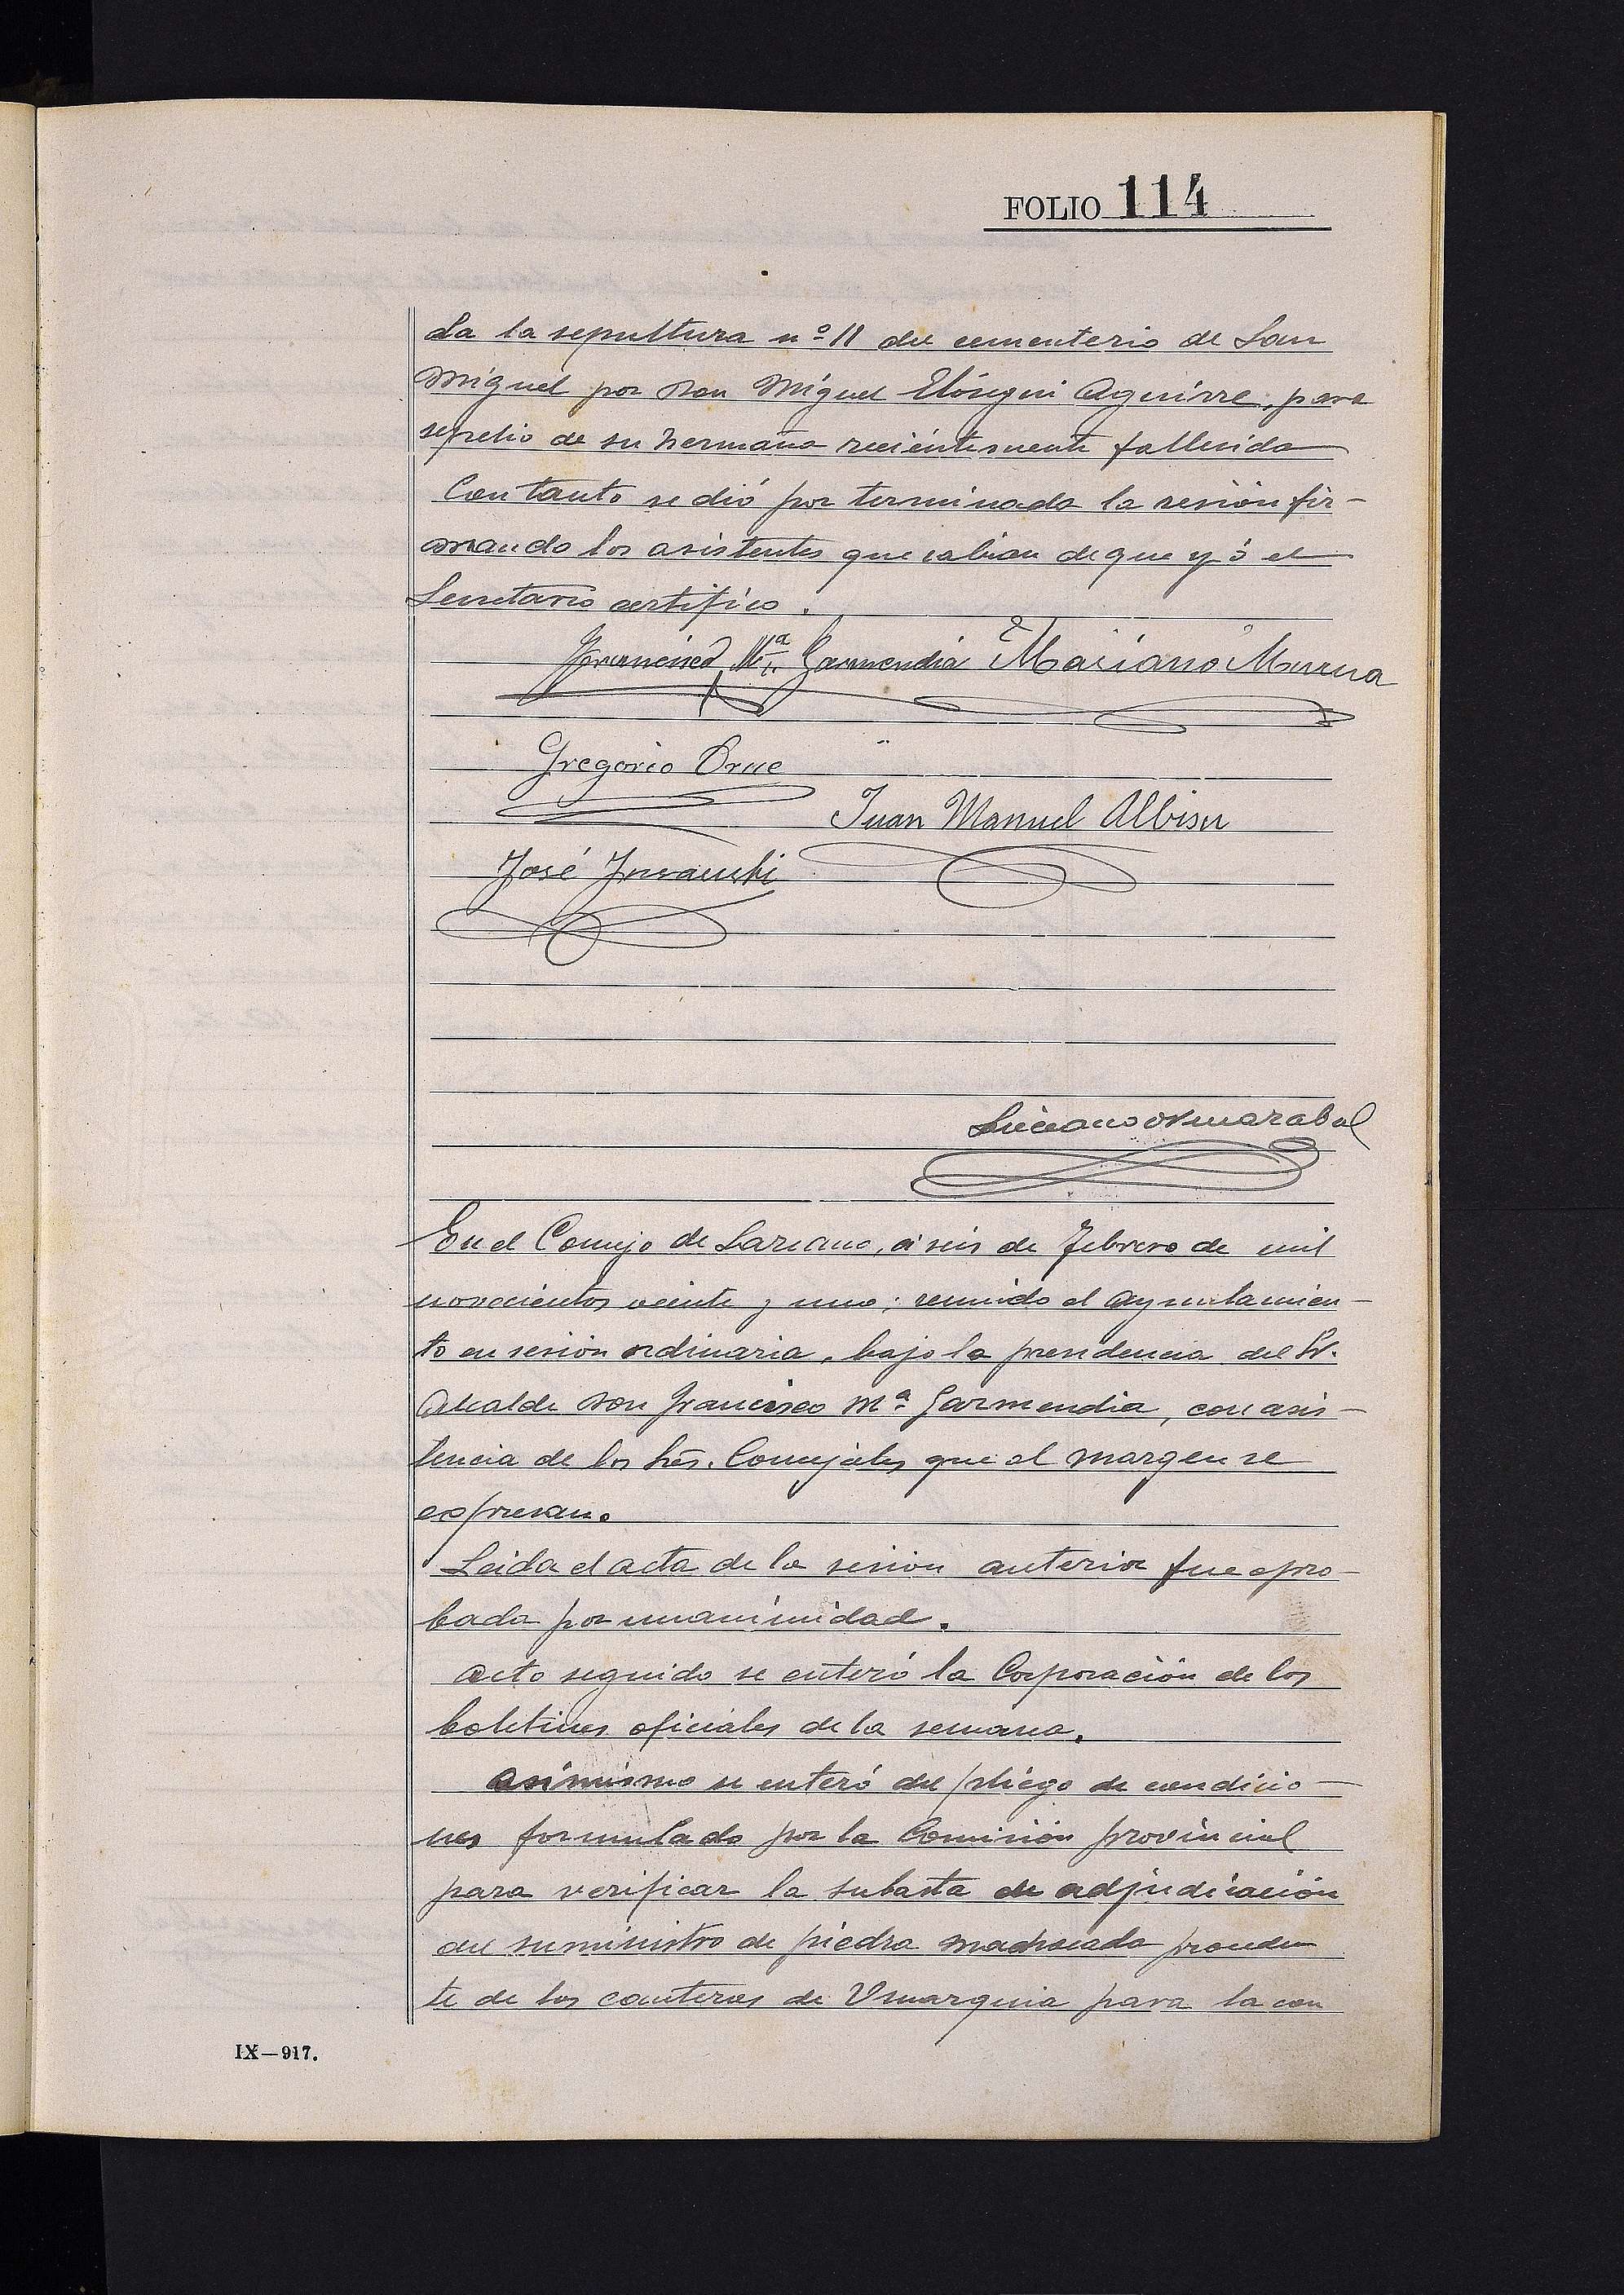 FOLIO 114
da la sepultura nº 11 del cementerio de San
Miguel por Don Miguel Elósegui Aguirre, para
sepelio de su hermana recientemente fallecida
Con tanto se dió por terminada la sesión fir-
mando los asistentes que sabian de que yó el
Secretario certifico.
Francisco Mª Garmendia Mariano Murua
Gregorio Orue
Juan Manuel Albisu
José
Luciano
En el Concejo de Lazcano, á seis de Febrero de mil
novecientos veinte y uno; reunido el Ayuntamien-
to en sesión ordinaria, bajo la presidencia del Sr.
Alcalde Don Francisco Mª Garmendia, con asis-
tencia de los Srēs. Concejales que al margen se
expresan.
Leida el acta de la sesión anterior fue apro-
bada por unanimidad.
Acto seguido se enteró la Corporación de los
boletines oficiales de la semana.
Asimismo se enteró del pliego de condicio-
nes formulado por la Comisión provincial
para verificar la subasta de adjudicación
del suministro de piedra machacada proceden
te de las canteras de para la con
IX—917.